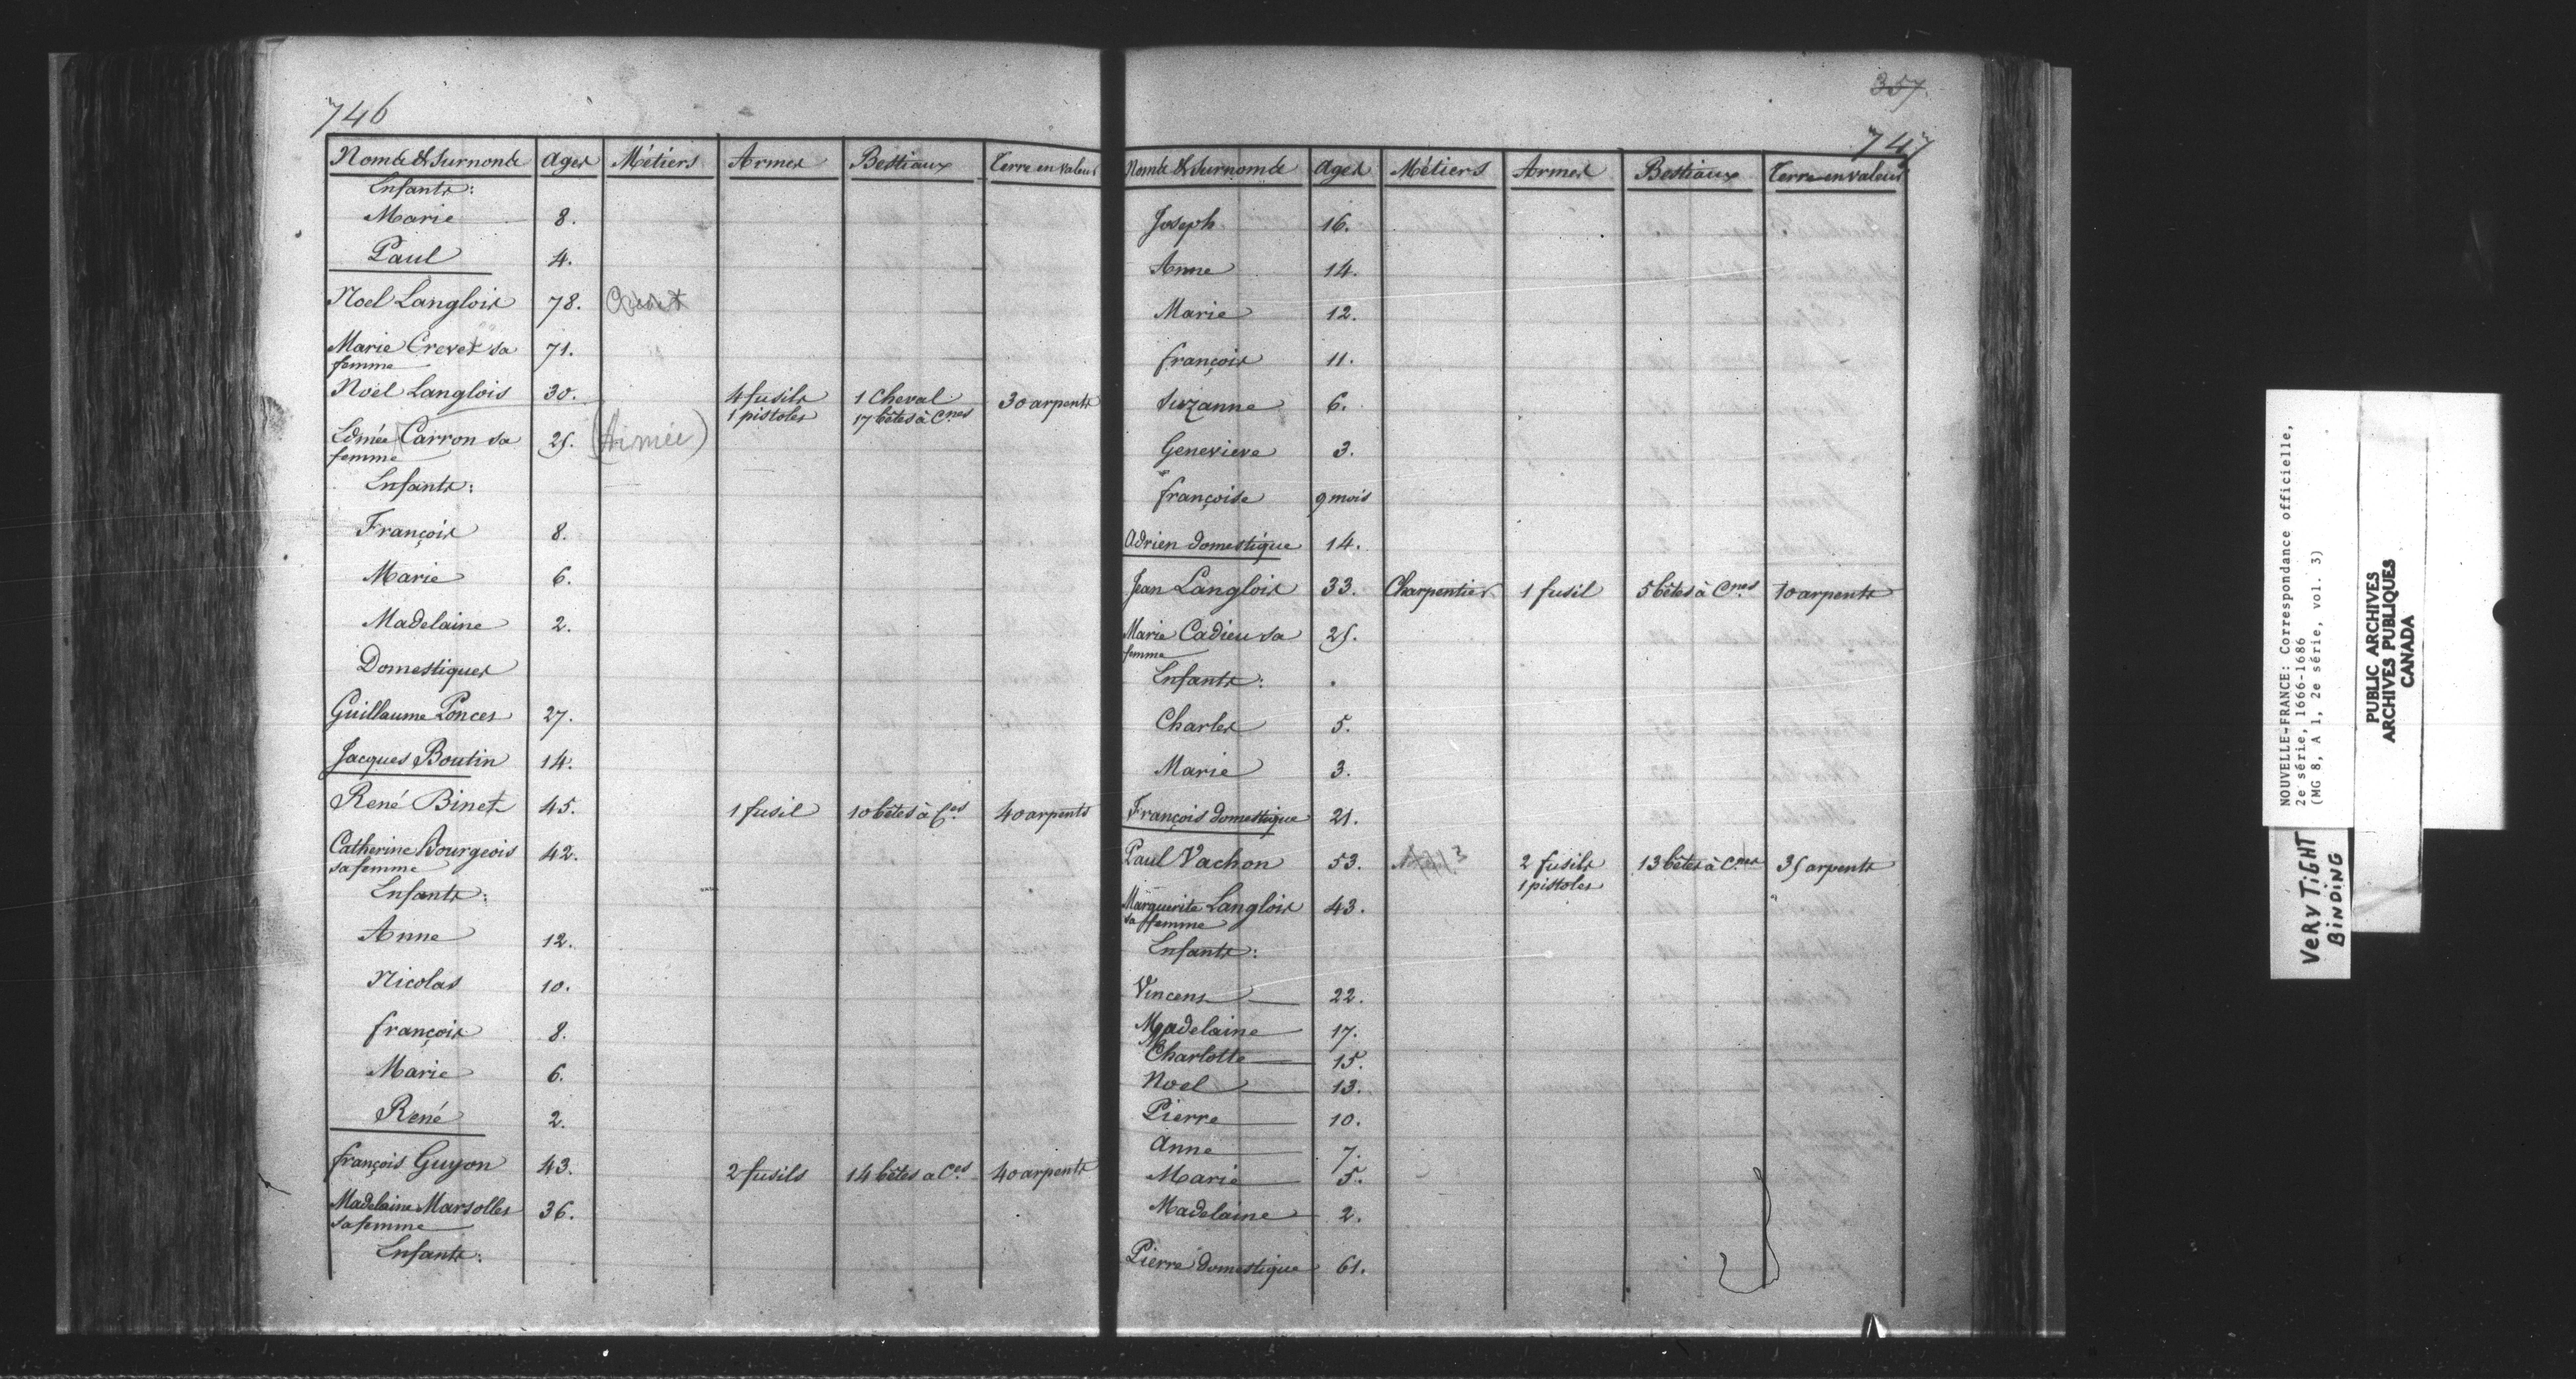 746
Noms & Surnoms Ages Métiers Armes Bestiaux Terre en valeur
Enfants:
Marie 8.
Paul 4.
Noel Langlois 78.
Marie Crevet sa 71.
femme
Noël Langlois 30. 4 fusils 1 Cheval 30 arpents
1 pistoles 17 bêtes à Cnes
Edmée Carron sa 25. (Aimée)
femme
Enfants:
François 8.
Marie 6.
Madelaine 2.
Domestiques
Guillaume Ponces 27.
Jacques Boutin 14.
René Binet 45. 1 fusil 10 bêtes à Ces 40 arpents
Catherine Bourgeois 42.
sa femme
Enfants:
Anne 12.
Nicolas 10.
françois 8.
Marie 6.
René 2.
françois Guyon 43. 2 fusils 14 bêtes a Ces 40 arpents
Madelaine Marsolles 36.
sa femme
Enfants:
357
747
Noms & Surnoms Ages Métiers Armes Bestiaux Terre en valeur
Joseph 16.
Anne 14.
Marie 12.
françois 11.
Suzanne 6.
Genevieve 3.
françoise 9 mois
Adrien domestique 14.
Jean Langlois 33. Charpentier 1 fusil 5 bêtes à Cnes 10 arpents
Marie Cadieu sa 25.
femme
Enfants:
Charles 5.
Marie 3.
François domestique 21.
Paul Vachon 53. 2 fusils 13 bêtes à Cnes 35 arpents
1 pistoles
Marguerite Langlois 43.
sa femme
Enfants:
Vincens 22.
Madelaine 17.
Charlotte 15.
Noel 13.
Pierre 10.
Anne 7.
Marie 5.
Madelaine 2.
Pierre domestique 61.
NOUVELLE-FRANCE: Correspondance officielle,
2e série, 1666-1686
(MG 8, A 1, 2e série, vol. 3)
PUBLIC ARCHIVES
ARCHIVES PUBLIQUES
CANADA
VERY TIGHT
BINDING